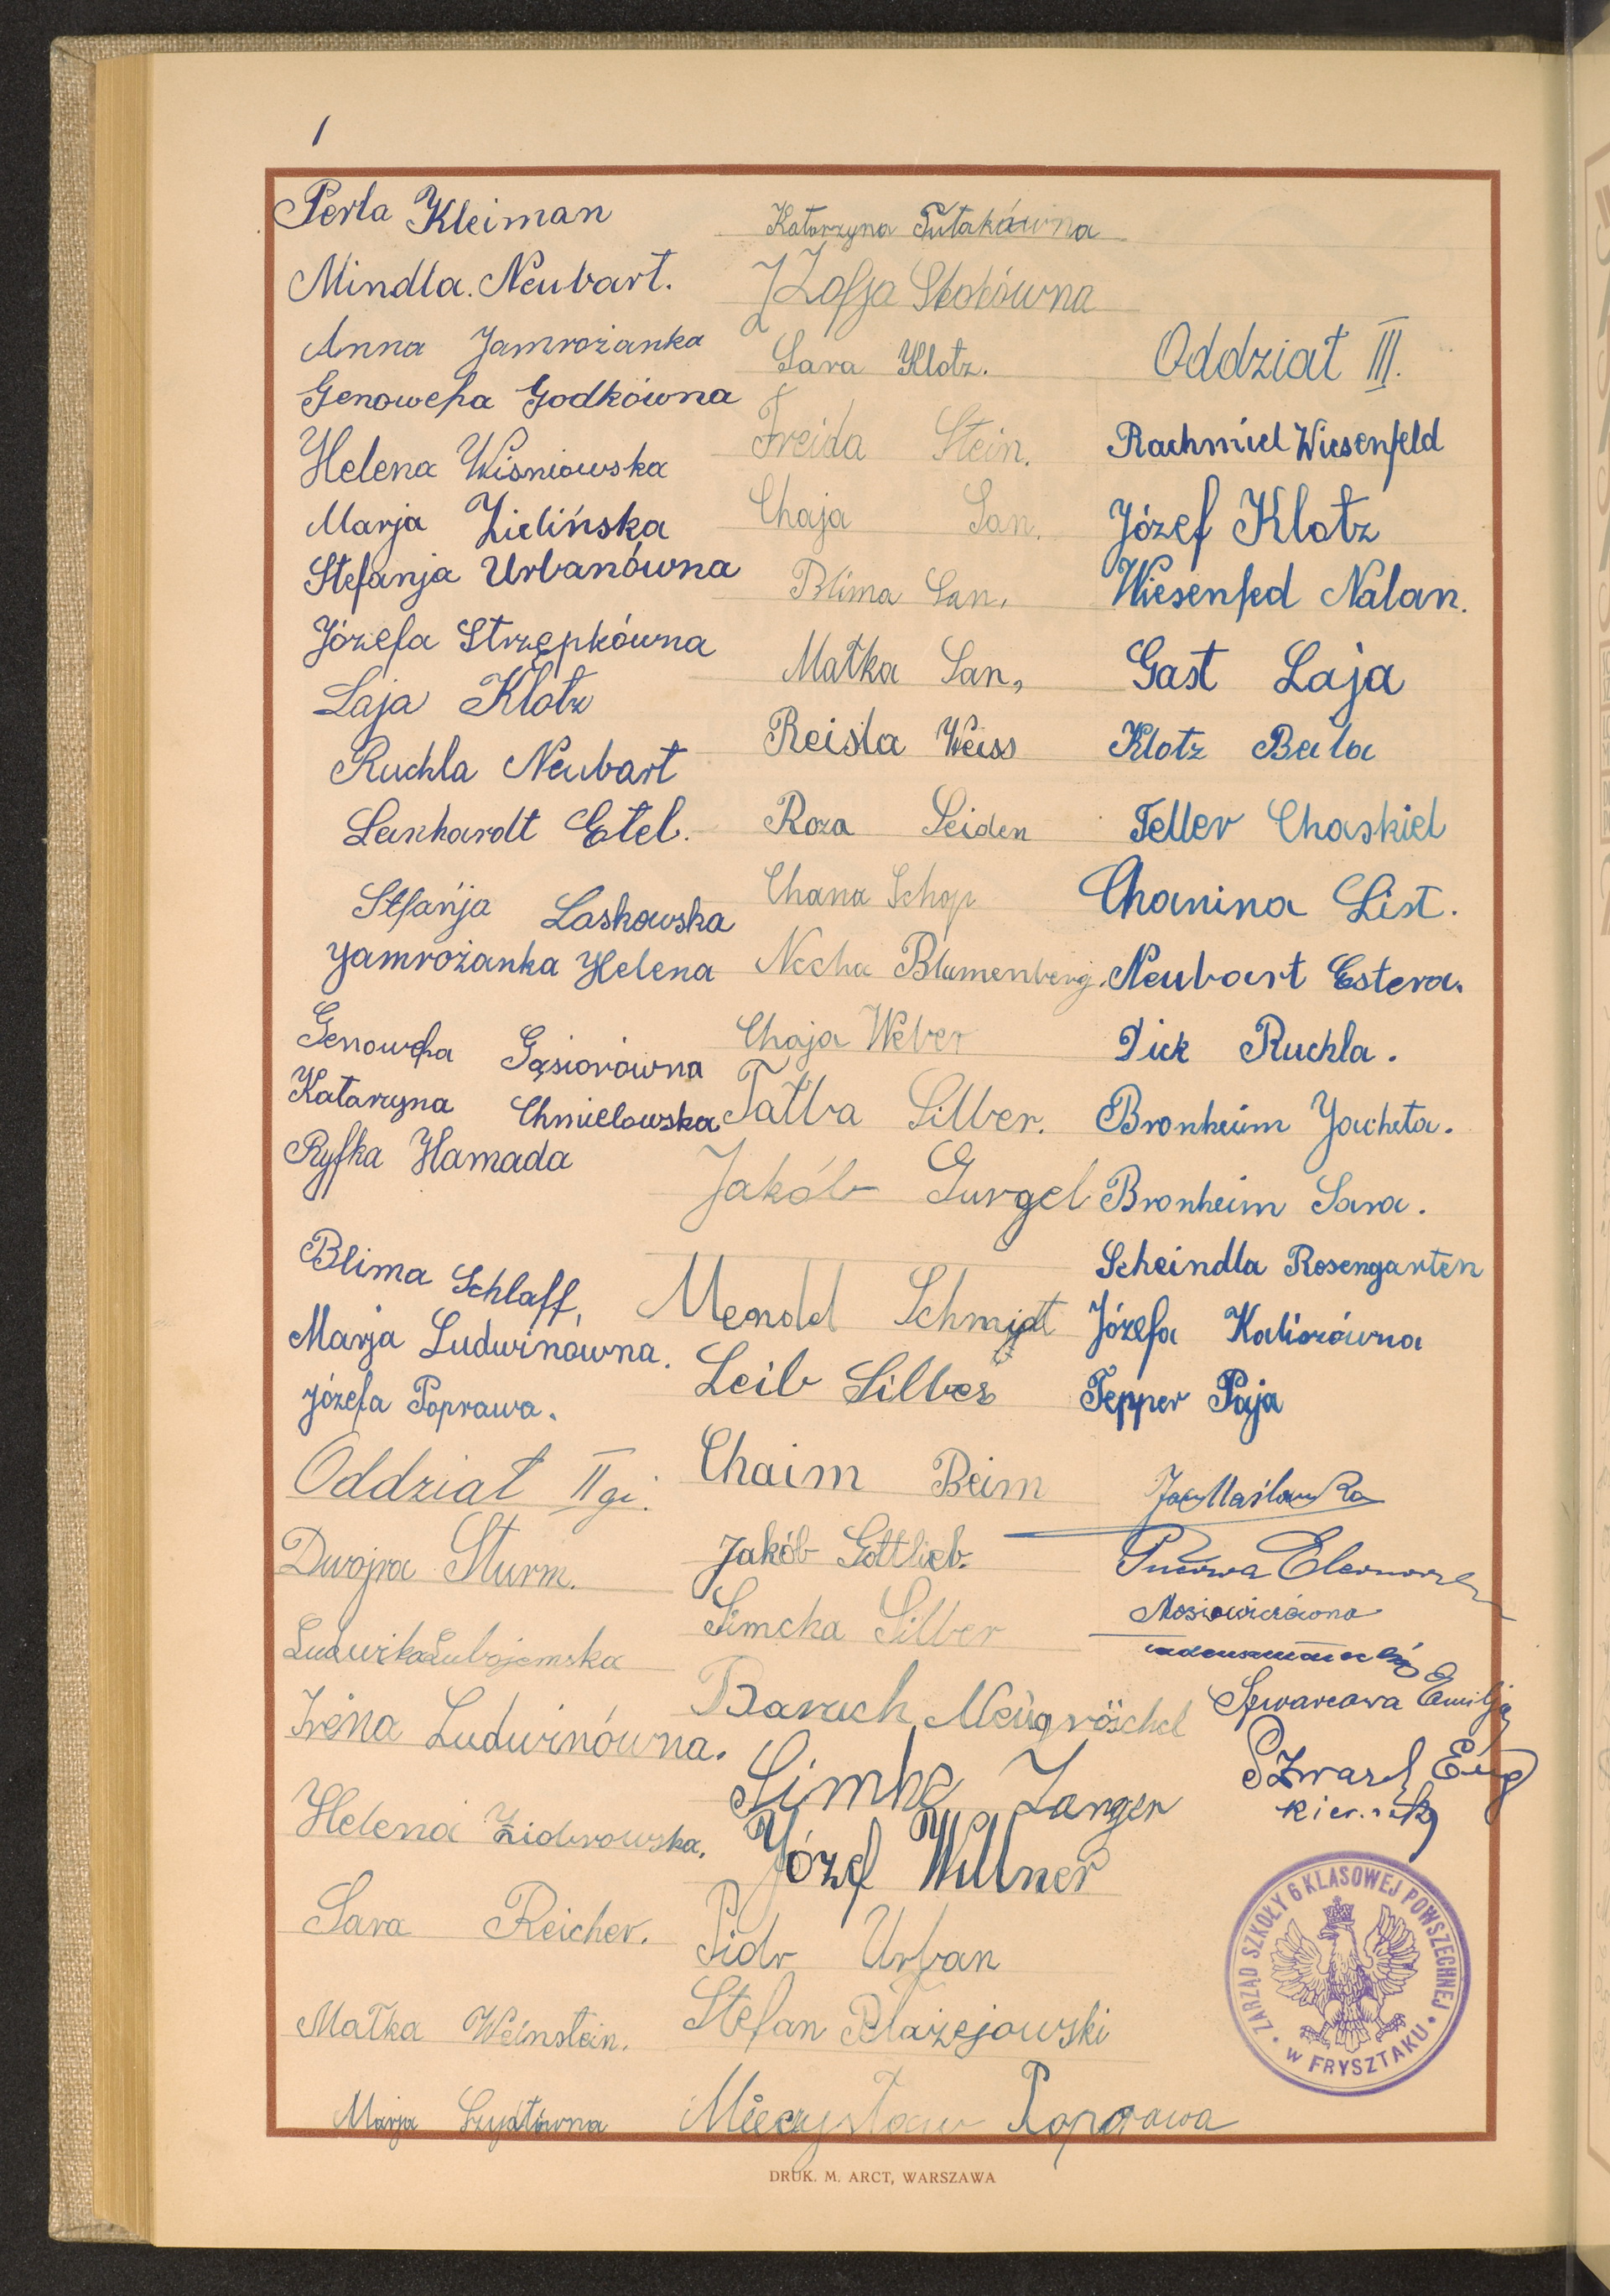 1
Perla Kleiman
Mindla. Neubart.
Anna Jamrożanka
Genowefa Godkówna
Helena Wiśniowska
Marja Zielińska
Stefanja Urbanówna
Józefa Strzępkówna
Laja Klotz
Ruchla Neubart
Leinhardt Etel.
Stefanja Laskowska
Jamrożanka Helena
Genowefa Gąsiorówna
Katarzyna Chmielowska
Ryfka Hamada
Blima Schlaff,
Marja Ludwinówna.
Józefa Poprawa.
Oddział II gi.
Dwojra Sturm.
Ludwika
Irena Ludwinówna.
Helena Ziobrowska.
Sara Reicher.
Małka Weinstein.
Marja
Katarzyna Tutakówna
Zofja
Sara Klotz.
Freida Stein.
Chaja San.
Blima San,
Małka San,
Reisla Weiss
Roza Seiden
Chana Schop
Necha Blumenberg.
Chaja Weber
Tałba Silber.
Jakób Gurgel
Mendel Schmidt
Leib Silber
Chaim Beim
Jakób Gottlieb.
Simcha Silber
Baruch Neugröschel
Simhe Langer
Józef Willner
Piotr Urban
Stefan Błażejowski
Mieczysław Poprawa
Oddział III.
Rachmiel Wiesenfeld
Józef Klotz
Wiesenfed Natan.
Gast Laja
Klotz Beila
Teller Chaskiel
Chanina List.
Neubart Estera.
Dick Ruchla.
Bronheim Jacheta.
Bronheim Sara.
Scheindla Rosengarten
Józefa Kaliszówna
Tepper Paja
Szwarcowa Emilja
Szwarc Eug
ZARZĄD SZKOŁY 6 KLASOWEJ POWSZECHNEJ
W FRYSZTAKU
DRUK. M. ARCT, WARSZAWA